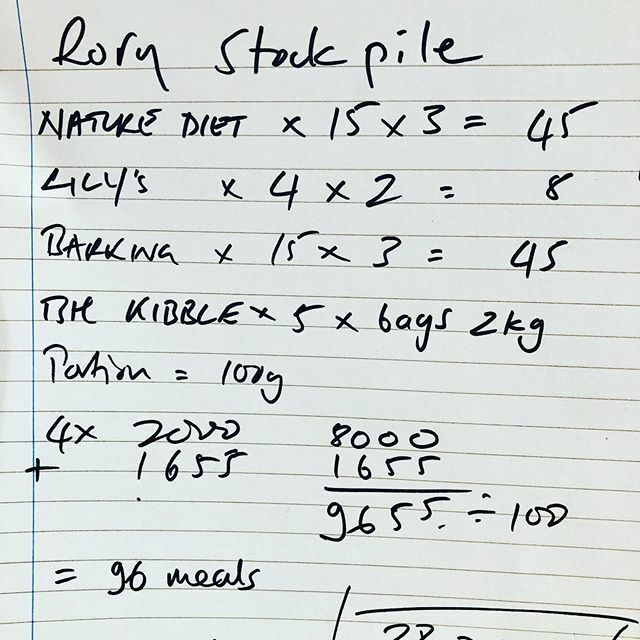 Rory Stockpile
NATURE DIET × 15 × 3 = 45
LILY's × 4 × 2 = 8
BARKING × 15 × 3 = 45
BH KIBBLE × 5 × bags 2kg
Portion = 100g
4x 2000 8000
+ 1655 1655
9655. ÷ 100
= 96 meals